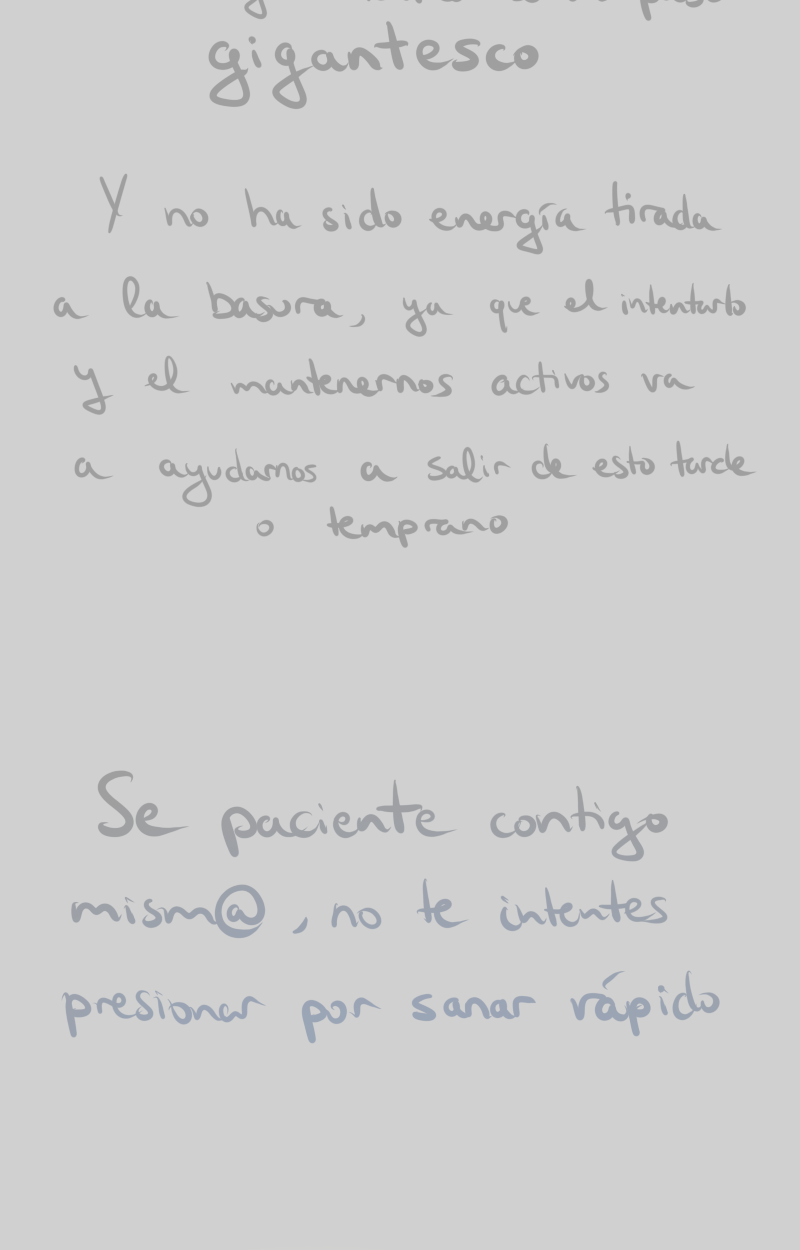 gigantesco
Y no ha sido energía tirada
a la basura, ya que el intentarlo
y el mantenernos activos va
a ayudarnos a salir de esto tarde
o temprano
Se paciente contigo
mism@, no te intentes
presionar por sanar rápido